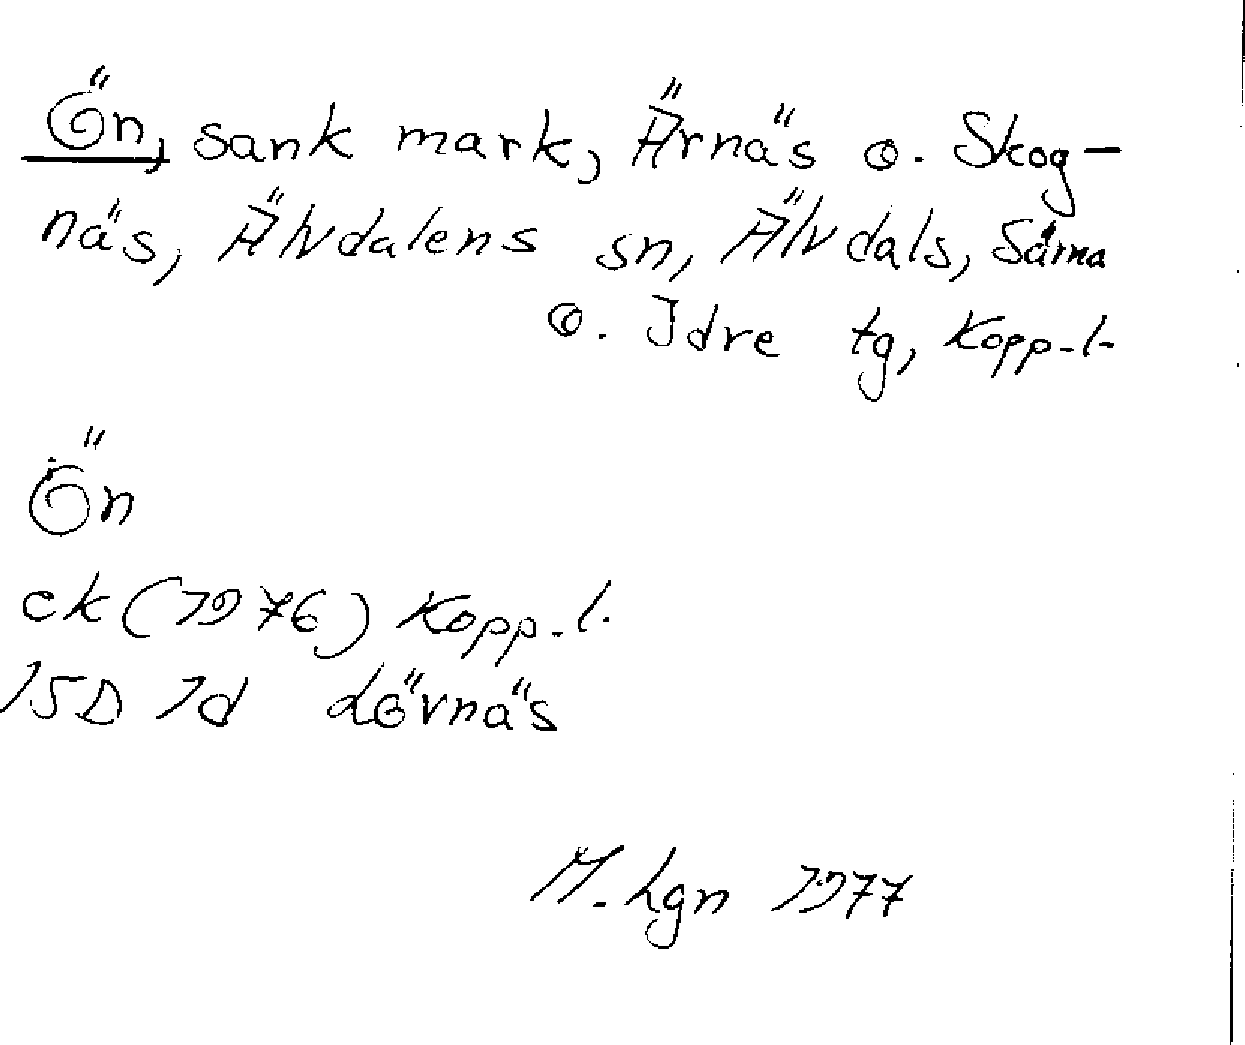 Ön, sank mark, Ärnäs o. Skog-
näs, Älvdalens sn, Älvdals, Särna
o. Idre tg, Kopp.l.
Ön
ek (1976) Kopp.l.
15D 1d Lövnäs
M. Lgn 1977